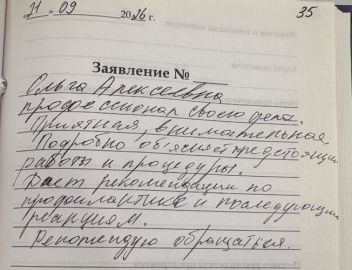 «21» 09 2026 г. 35
Заявление №
Ольга Алексеевна
профессионал своего дела.
Приятная, внимательная.
Подробно объясняет предстоящие
работы и процедуры.
Дает рекомендации по
профилактике и последующим
реакциям.
Рекомендую обращаться.